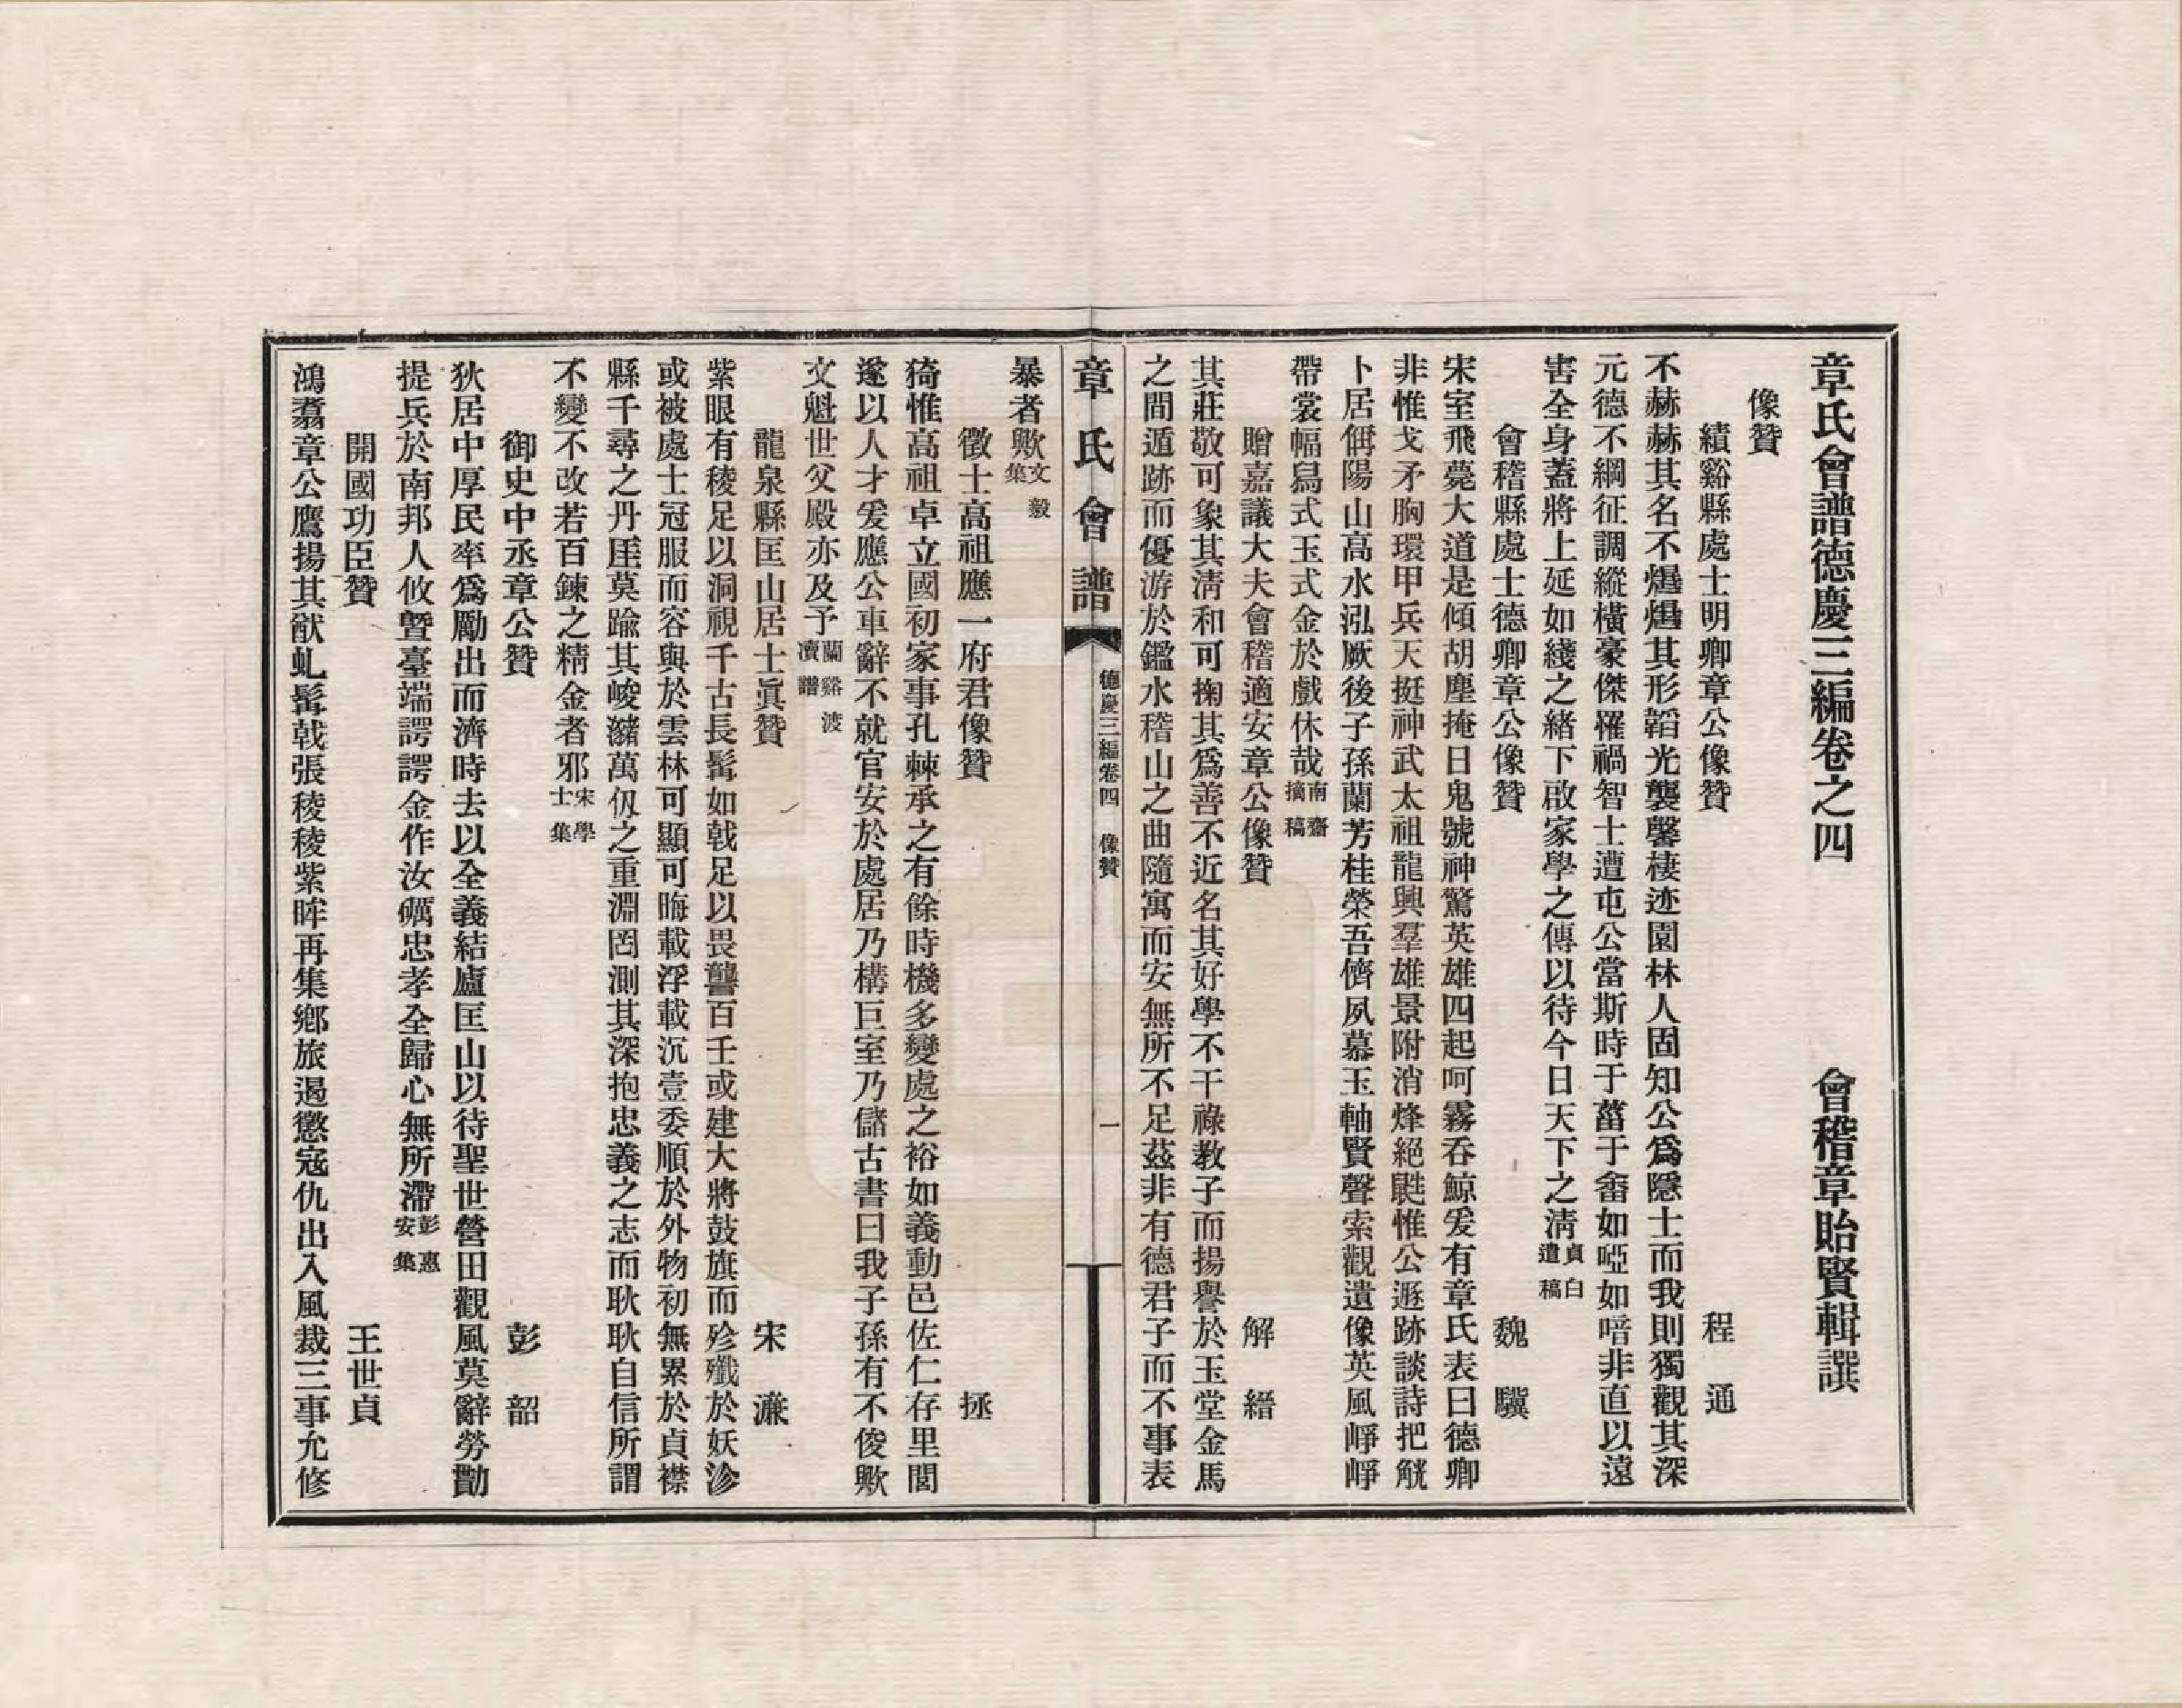 章氏會譜德慶三編卷之四　會稽章貽賢輯譔
像贊
績谿縣處士明卿章公像贊　程　通
不赫赫其名不爗爗其形韜光襲馨棲迹園林人固知公爲隱士而我則獨觀其深
元德不綱征調縱橫豪傑罹禍智士遭屯公當斯時于菑于畬如啞如喑非直以遠
害全身蓋將上延如綫之緒下啟家學之傳以待今日天下之淸貞白遺稿
會稽縣處士德卿章公像贊　魏　驥
宋室飛薨大道是傾胡塵掩日鬼號神驚英雄四起呵霧吞鯨爰有章氏表曰德卿
非惟戈矛胸環甲兵天挺神武太祖龍興羣雄景附消烽絕鼪惟公遯跡談詩把觥
卜居偁陽山高水泓厥後子孫蘭芳桂榮吾儕夙慕玉軸賢聲索觀遺像英風崢崢
帶裳幅舄式玉式金於戲休哉南齋摘稿
贈嘉議大夫會稽適安章公像贊　解　縉
其莊敬可象其淸和可掬其爲善不近名其好學不干祿教子而揚譽於玉堂金馬
之間遁跡而優游於鑑水稽山之曲隨寓而安無所不足茲非有德君子而不事表
章氏會譜　德慶三編卷四　像贊　一
暴者歟文毅集
徵士高祖應一府君像贊　拯
猗惟高祖卓立國初家事孔棘承之有餘時機多變處之裕如義動邑佐仁存里閭
遂以人才爰應公車辭不就官安於處居乃構巨室乃儲古書曰我子孫有不俊歟
文魁世父殿亦及予蘭谿渡瀆譜
龍泉縣匡山居士眞贊　宋　濂
紫眼有稜足以洞視千古長髯如戟足以畏讋百壬或建大將鼓旗而殄殲於妖沴
或被處士冠服而容與於雲林可顯可晦載浮載沉壹委順於外物初無累於貞襟
縣千尋之丹厓莫踰其峻瀦萬仭之重淵罔測其深抱忠義之志而耿耿自信所謂
不變不改若百鍊之精金者邪宋學士集
御史中丞章公贊　彭　韶
狄居中厚民率爲勵出而濟時去以全義結廬匡山以待聖世營田觀風莫辭勞勩
提兵於南邦人攸曁臺端諤諤金作汝礪忠孝全歸心無所滯彭惠安集
開國功臣贊　王世貞
鴻翥章公鷹揚其猷虬髯戟張稜稜紫眸再集鄉旅遏懲寇仇出入風裁三事允修